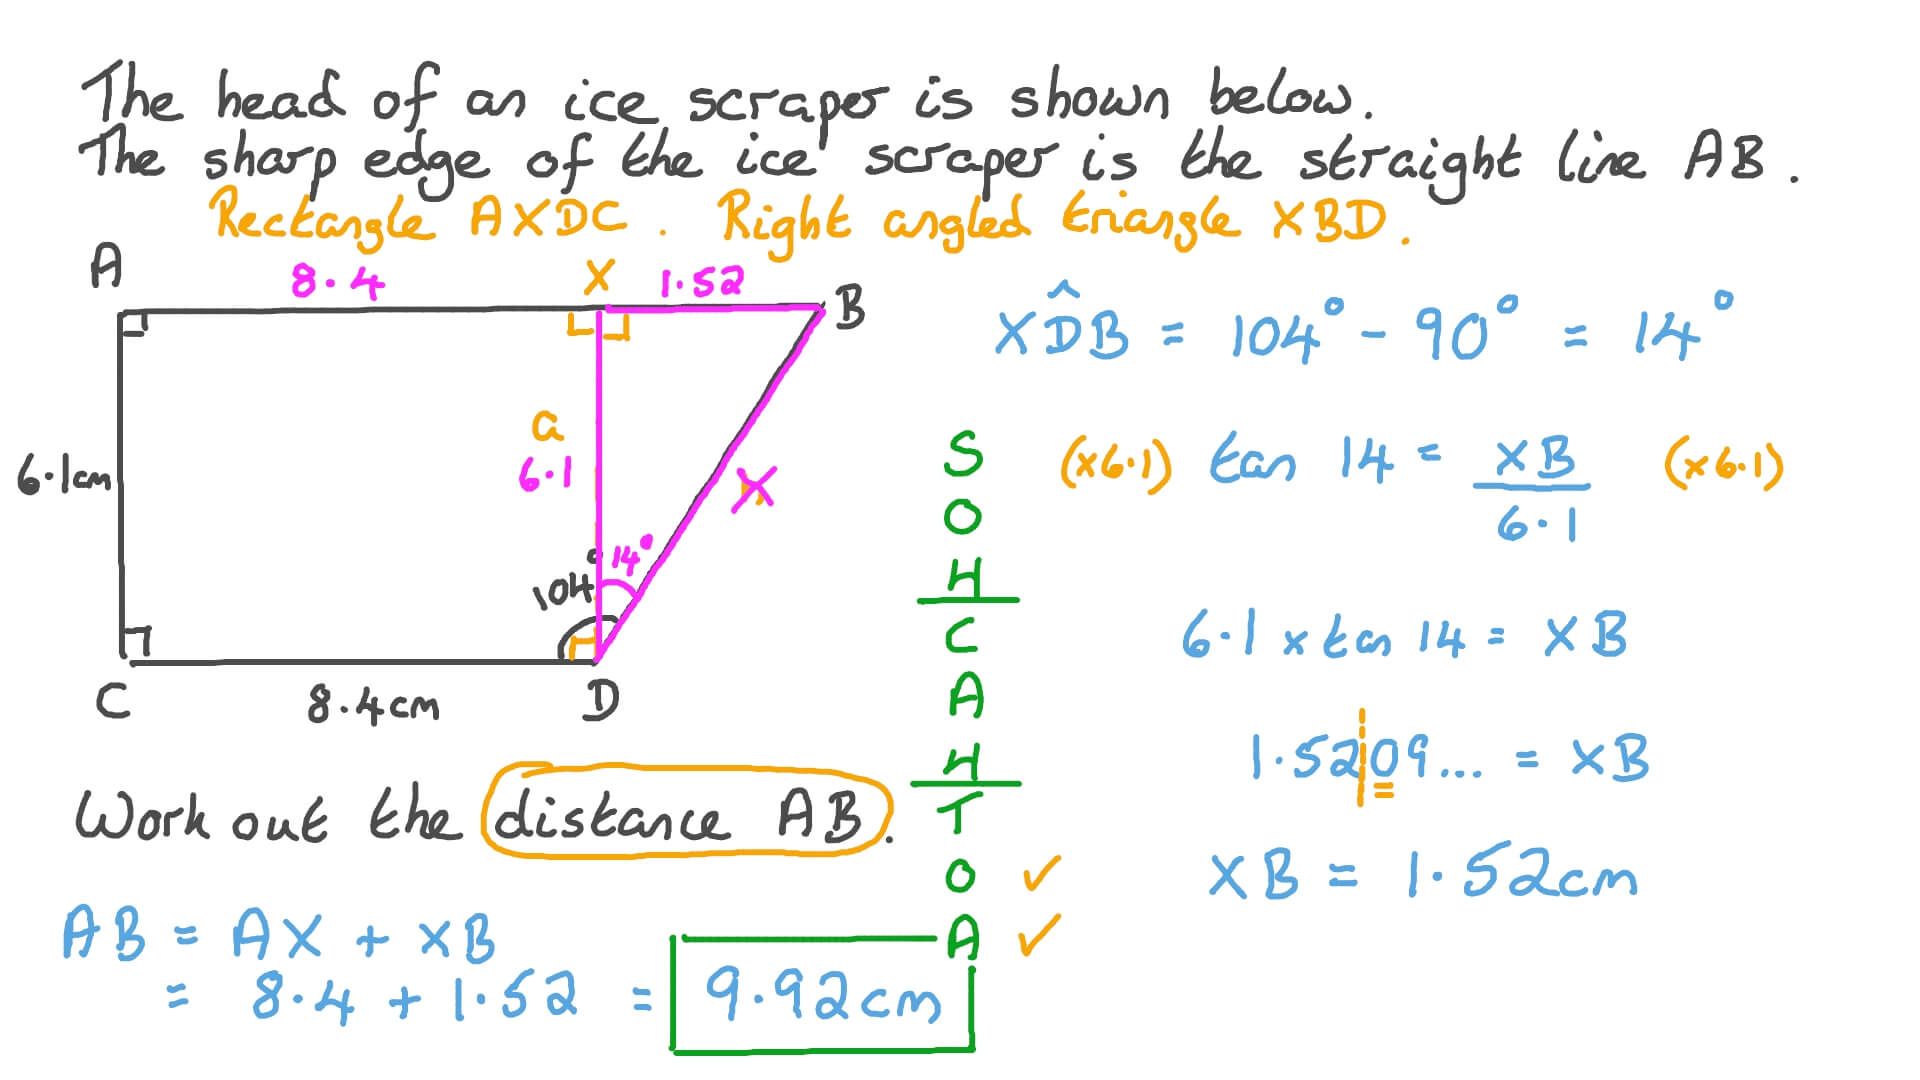 The head of an ice scraper is shown below.
The sharp edge of the ice scraper is the straight line AB.
Rectangle AXDC. Right angled triangle XBD.
A
8.4
X
1.52
B
6.1cm
a
6.1
14°
104°
C
8.4cm
D
Work out the distance AB.
AB = AX + XB
= 8.4 + 1.52 = 9.92cm
S
O
H
C
A
H
T
O ✓
A ✓
XD̂B = 104° - 90° = 14°
(x6.1) tan 14 = XB (x6.1)
6.1
6.1 x tan 14 = XB
1.5209... = XB
XB = 1.52cm